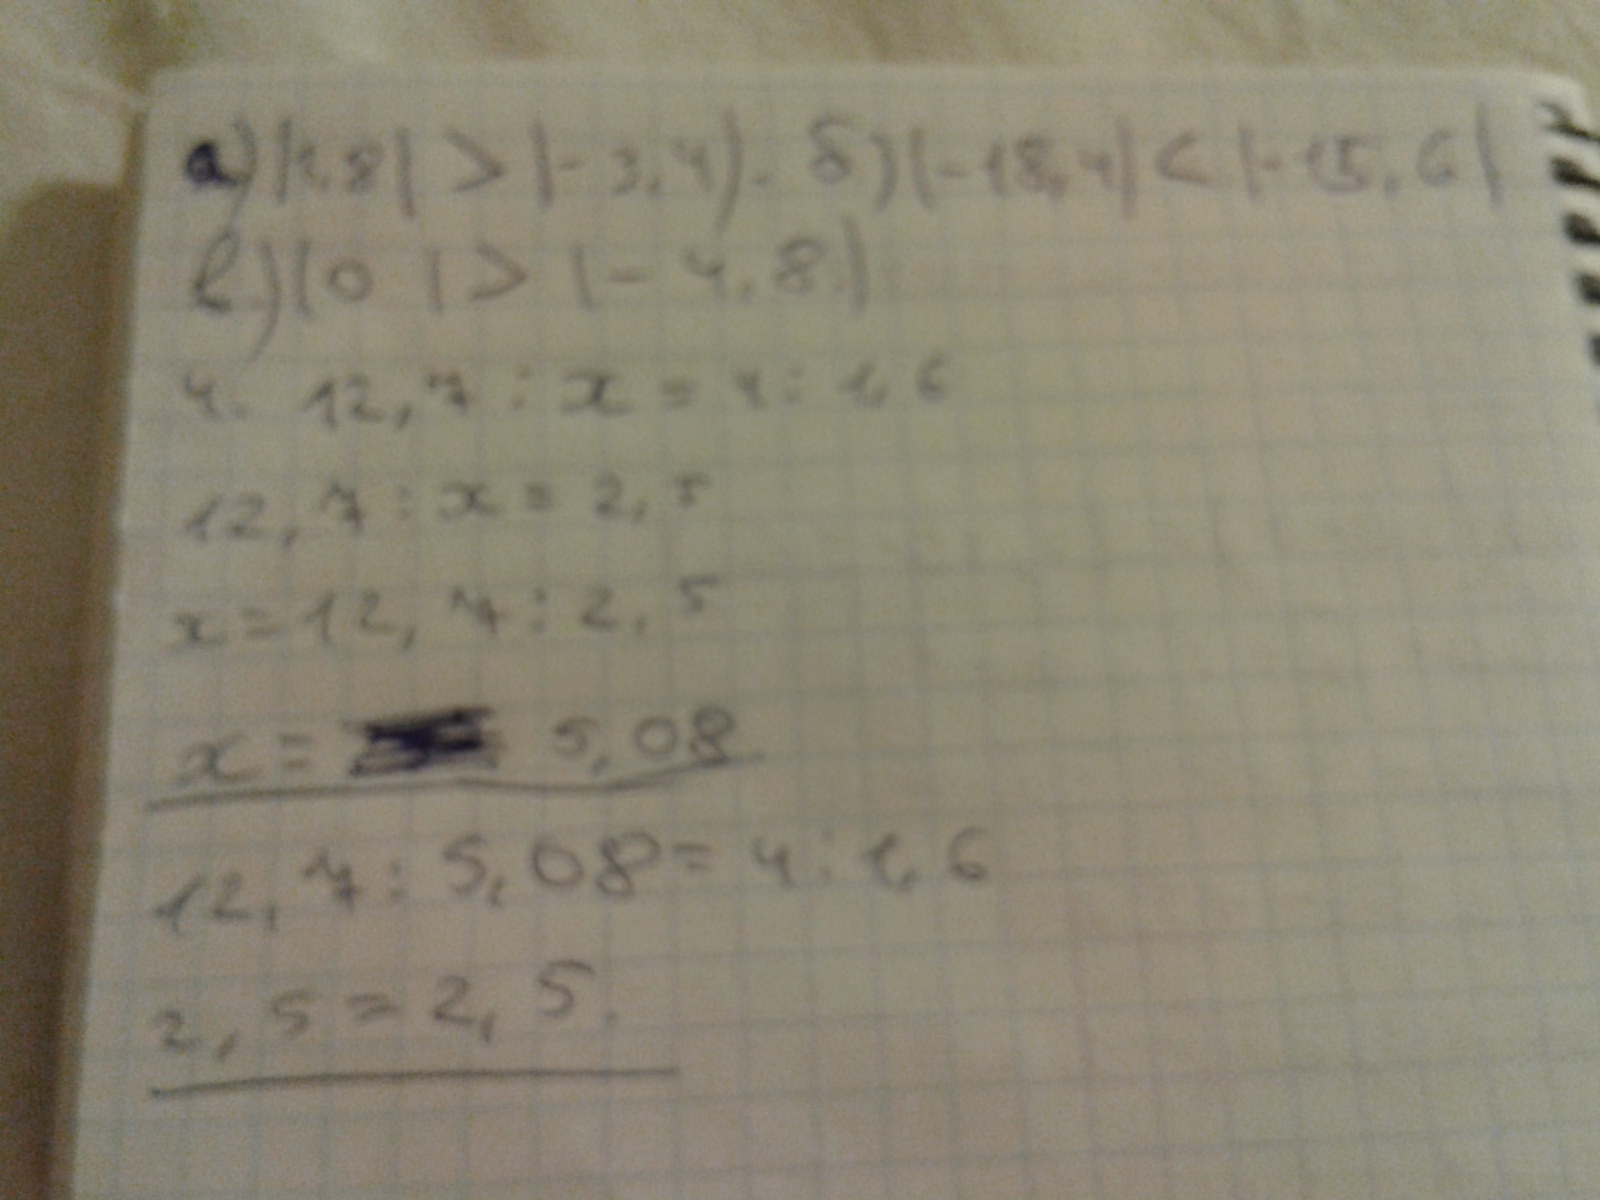 а) |1,8| > |-3,4|. б) |-18,4| < |-15,6|
в) |0| > |-4,8|
4. 12,7 : x = 4 : 1,6
12,7 : x = 2,5
x = 12,7 : 2,5
x = 5,08
12,7 : 5,08 = 4 : 1,6
2,5 = 2,5.